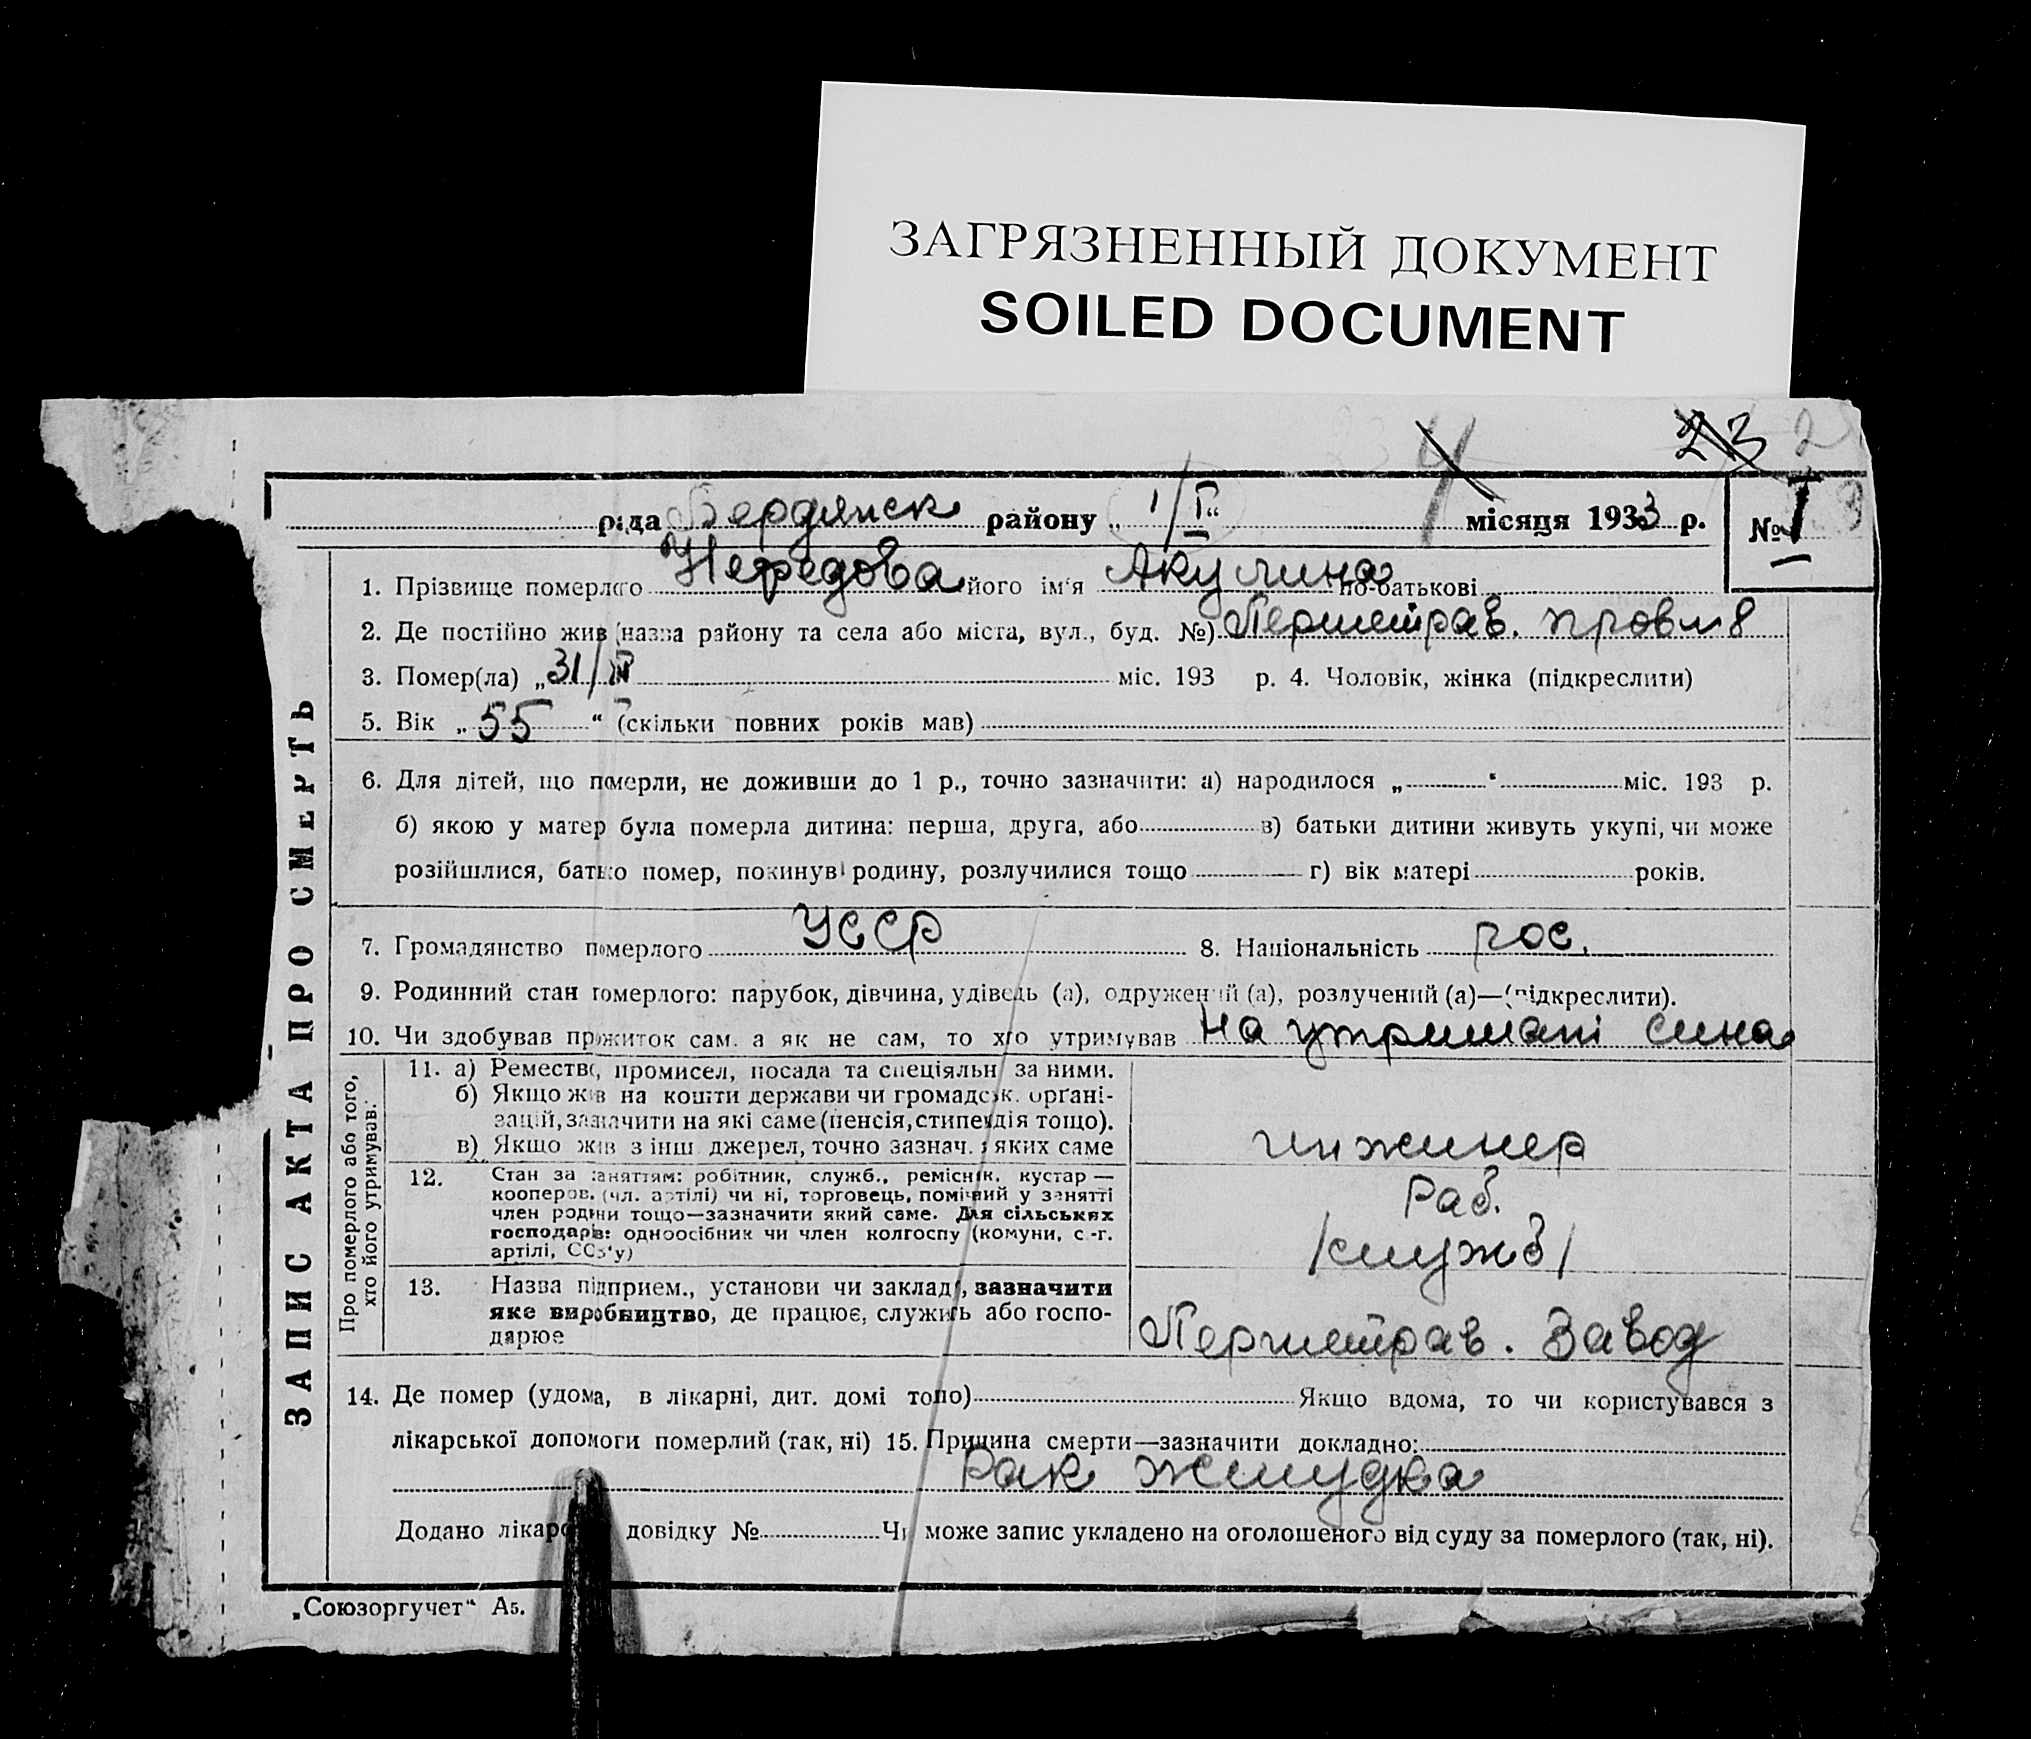 ЗАГРЯЗНЕННЫЙ ДОКУМЕНТ
SOILED DOCUMENT
4 23 2
рада Бердянск району „ 1/I “ місяця 1933 р. № 1
1. Прізвище померлого Нефедова його ім'я Акулина по-батькові
2. Де постійно жив (назва району та села або міста, вул., буд. №) Першетрав. пров № 8
3. Помер(ла) „ 31/ міс. 193 р. 4. Чоловік, жінка (підкреслити)
5. Вік „ 55 “ (скільки повних років мав)
6. Для дітей, що померли, не доживши до 1 р., точно зазначити: а) народилося „ “ міс. 193 р.
б) якою у матер була померла дитина: перша, друга, або в) батьки дитини живуть укупі, чи може
розійшлися, батько помер, покинув родину, розлучилися тощо г) вік матері років.
7. Громадянство померлого УССР 8. Національність рос.
9. Родинний стан померлого: парубок, дівчина, удівець (а), одружений (а), розлучений (а)—(підкреслити).
10. Чи здобував прожиток сам. а як не сам, то хто утримував на утримані сина
ЗАПИС АКТА ПРО СМЕРТЬ
Про померлого або того,
хто його утримував:
11. а) Ремество, промисел, посада та спеціяльн за ними.
б) Якщо жив на кошти держави чи громадськ. органі-
зацій, зазначити на які саме (пенсія, стипендія тощо).
в) Якщо жив з інш джерел, точно зазнач. з яких саме
инжинер
12. Стан за заняттям: робітник, служб., ремісник, кустар —
кооперов. (чл. артілі) чи ні, торговець, помічний у занятті
член родини тощо—зазначити який саме. Для сільських
господарів: одноосібник чи член колгоспу (комуни, с.-г.
артілі, СОЗ'у)
Раб.
/служб/
13. Назва підприєм., установи чи закладу, зазначити
яке виробництво, де працює, служить або госпо-
дарює
Першетрав. Завод
14. Де помер (удома, в лікарні, дит. домі тощо) Якщо вдома, то чи користувався з
лікарської допомоги померлий (так, ні) 15. Причина смерти—зазначити докладно:
Рак желудка
Додано лікарську довідку № Чи може запис укладено на оголошеного від суду за померлого (так, ні).
„Союзоргучет“ А5.